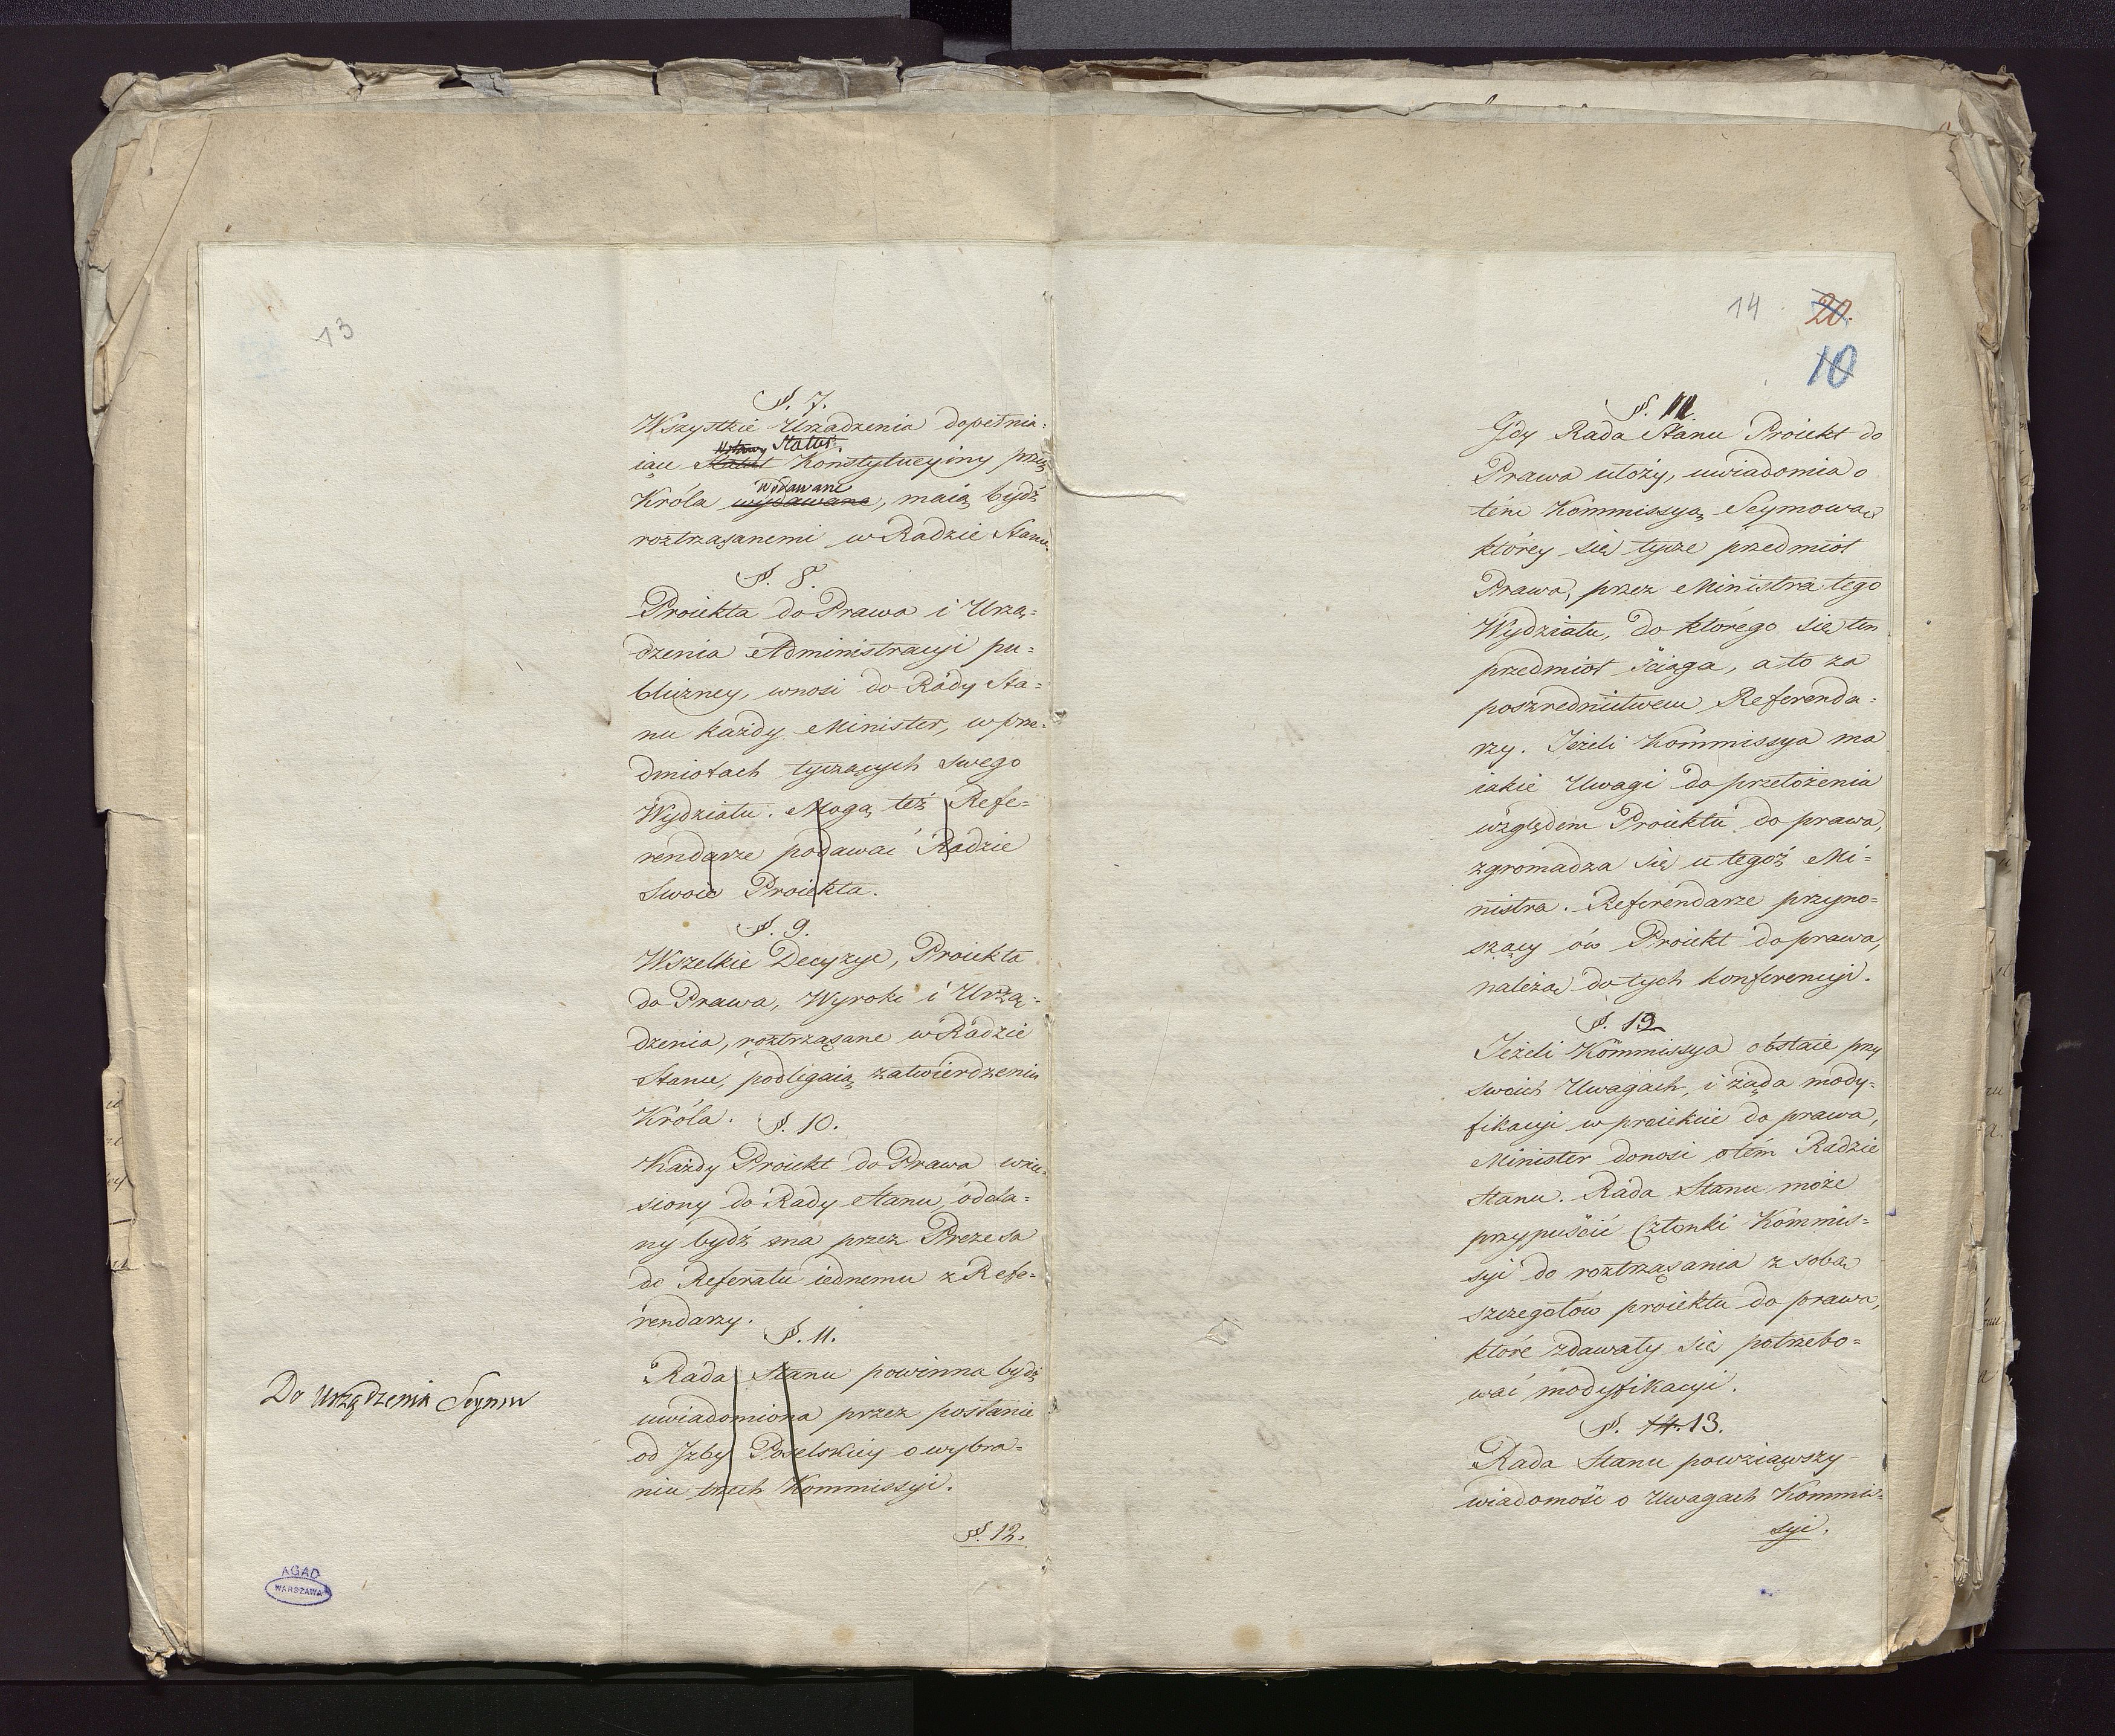 13
§. 7.
Wszystkie Urządzenia dopełnia=
Ustawy Statut
iące Statut Konstytucyiny przez
wydawane
Króla wydawane, maią bydź
roztrząsanemi w Radzie Stanu.
§. 8.
Proiekta do Prawa i Urzą=
dzenia Administracyi pu=
bliczney, wnosi do Rady Sta=
nu każdy Minister, w prze=
dmiotach tyczących swego
Wydziału. Mogą też Refe=
rendarze podawać Radzie
swoie Proiekta.
§. 9.
Wszelkie Decyzye, Proiekta
do Prawa, Wyroki i Urzą=
dzenia, roztrząsane w Radzie
Stanu, podlegaią zatwierdzeniu
Króla.
§. 10.
Każdy Proiekt do Prawa wnie=
siony do Rady Stanu, odda=
ny bydź ma przez Prezesa
do Referatu iednemu z Refe=
rendarzy.
§. 11.
Rada Stanu powinna bydź
uwiadomiona przez posłanie
od Izby Poselskiey o wybra=
niu trzech Kommissyi.
Do Urządzenia Seymu
§. 12.
AGAD
WARSZAWA
14
20.
10
§. 11.
Gdy Rada Stanu Proiekt do
Prawa ułoży, uwiadomia o
tém Kommissyą Seymową
którey się tycze przedmiot
Prawa, przez Ministra tego
Wydziału, do którego się ten
przedmiot ściąga, a to za
poszrednictwem Referenda=
rzy. Jeżeli Kommissya ma
iakie Uwagi do przełożenia
względem Proiektu do prawa,
zgromadza się u tegoż Mi=
nistra. Referendarze przyno=
szący ów Proiekt do prawa,
należą do tych konferencyi.
§. 12
Jeżeli Kommissya obstaie przy
swoich Uwagach, i żąda mody=
fikacyi w proiekcie do prawa,
Minister donosi o tém Radzie
Stanu. Rada Stanu może
przypuścić Członki Kommis=
syi do roztrząsania z sobą
szczegółów proiektu do prawa,
które zdawały się potrzebo=
wać modyfikacyi.
§. 14. 13.
Rada Stanu powziąwszy
wiadomość o Uwagach Kommis=
syi.